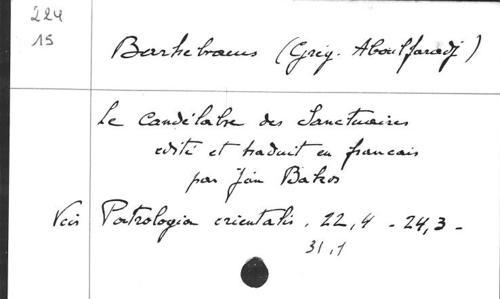 224
15
Barhebraeus (Grég. Aboulfaradj)
Le Candélabre des Sanctuaires
édité et traduit en francais
par Ján Bakos
Voir Patrologia orientalis. 22,4 - 24,3 -
31,1